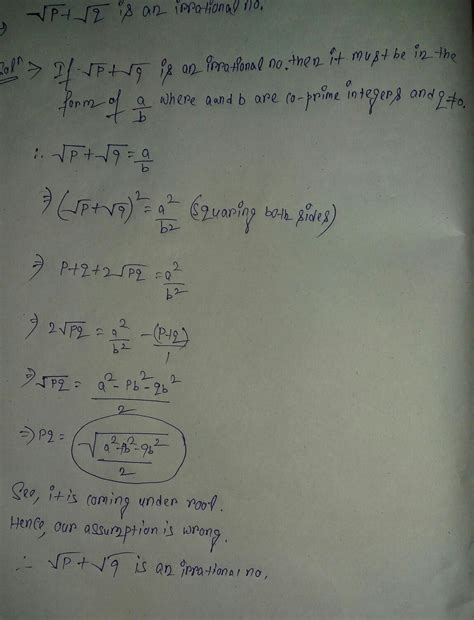 √P + √q is an irrational no.
Solⁿ > If √P + √q is an irrational no. then it must be in the
form of a/b where a and b are co-prime integers and q≠0.
∴ √P + √q = a/b
⇒ (√P + √q)² = a²/b² (squaring both sides)
⇒ P+q+2√Pq = a²/b²
⇒ 2√Pq = a²/b² - (P+q)/1
⇒ √Pq = a² - Pb² - qb² / 2
⇒ Pq = √a² - Pb² - qb² / 2
See, it is coming under root.
Hence, our assumption is wrong.
∴ √P + √q is an irrational no.